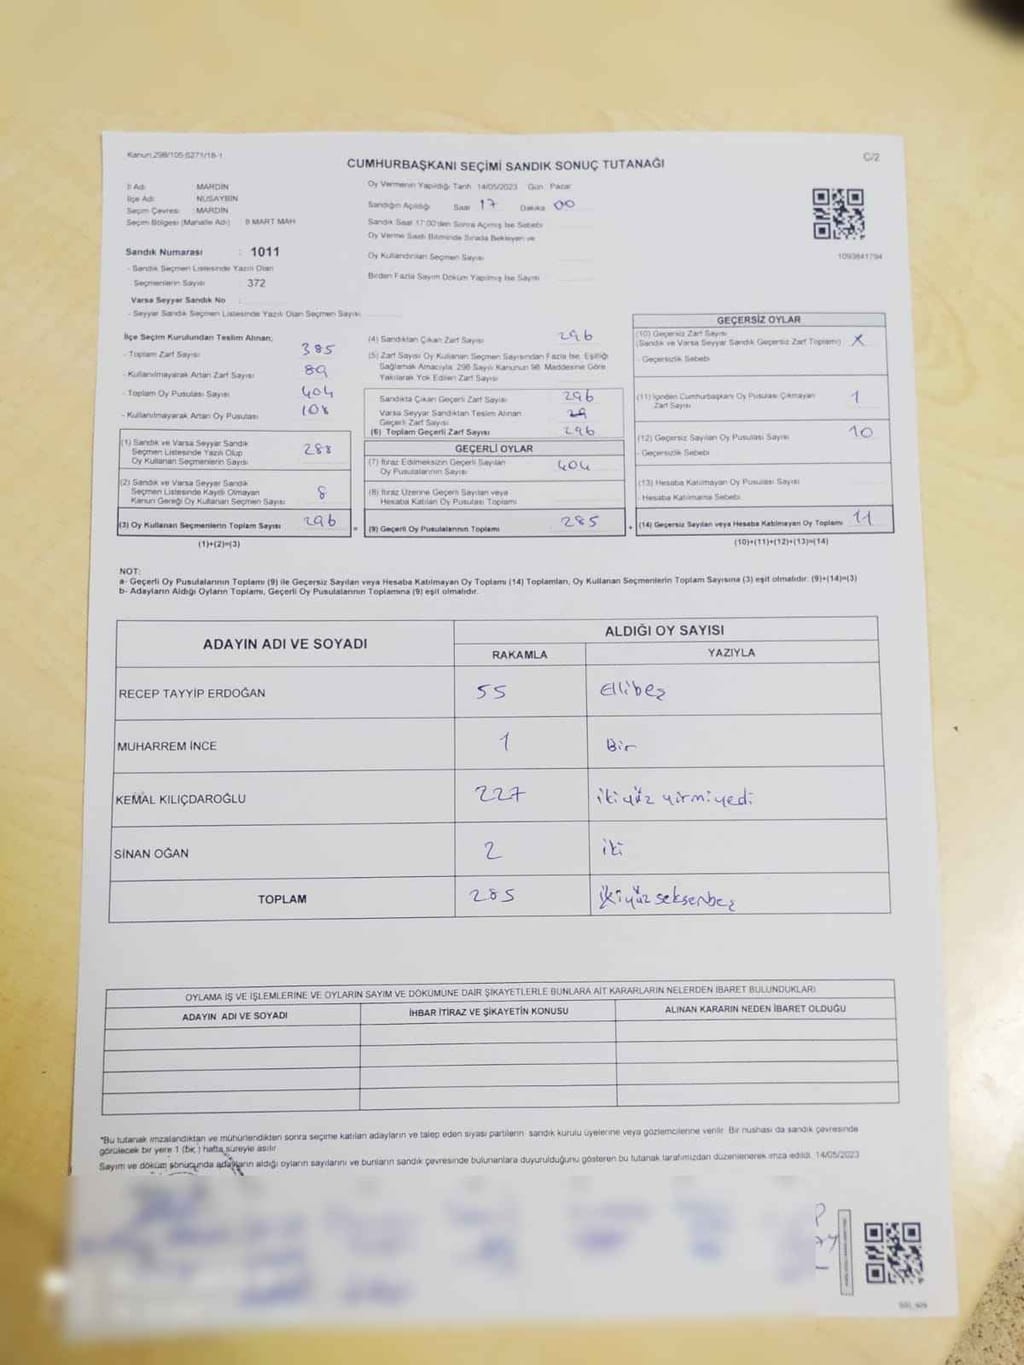 Kanun 298/105-6271/18-1
C/2
CUMHURBAŞKANI SEÇİMİ SANDIK SONUÇ TUTANAĞI
İl Adı MARDİN
İlçe Adı NUSAYBİN
Seçim Çevresi MARDİN
Seçim Bölgesi (Mahalle Adı) 8 MART MAH
Sandık Numarası : 1011
- Sandık Seçmen Listesinde Yazılı Olan
Seçmenlerin Sayısı 372
Varsa Seyyar Sandık No
- Seyyar Sandık Seçmen Listesinde Yazılı Olan Seçmen Sayısı
Oy Vermenin Yapıldığı Tarih 14/05/2023 Gün Pazar
Sandığın Açıldığı Saat 17 Dakika 00
Sandık Saat 17:00'den Sonra Açmış İse Sebebi
Oy Verme Saati Bitiminde Sırada Bekleyen ve
Oy Kullandırılan Seçmen Sayısı
Birden Fazla Sayım Döküm Yapılmış İse Sayısı
1093841794
İlçe Seçim Kurulundan Teslim Alınan;
- Toplam Zarf Sayısı 385
- Kullanılmayarak Artan Zarf Sayısı 89
- Toplam Oy Pusulası Sayısı 404
- Kullanılmayarak Artan Oy Pusulası 108
(1) Sandık ve Varsa Seyyar Sandık
Seçmen Listesinde Yazılı Olup
Oy Kullanan Seçmenlerin Sayısı 288
(2) Sandık ve Varsa Seyyar Sandık
Seçmen Listesinde Kayıtlı Olmayan
Kanun Gereği Oy Kullanan Seçmen Sayısı 8
(3) Oy Kullanan Seçmenlerin Toplam Sayısı 296
(1)+(2)=(3)
(4) Sandıktan Çıkan Zarf Sayısı 296
(5) Zarf Sayısı Oy Kullanan Seçmen Sayısından Fazla İse, Eşitliği
Sağlamak Amacıyla, 298 Sayılı Kanunun 98. Maddesine Göre
Yakılarak Yok Edilen Zarf Sayısı
Sandıkta Çıkan Geçerli Zarf Sayısı 296
Varsa Seyyar Sandıktan Teslim Alınan
Geçerli Zarf Sayısı
(6) Toplam Geçerli Zarf Sayısı 296
GEÇERLİ OYLAR
(7) İtiraz Edilmeksizin Geçerli Sayılan
Oy Pusulalarının Sayısı 404
(8) İtiraz Üzerine Geçerli Sayılan veya
Hesaba Katılan Oy Pusulası Toplamı
= (9) Geçerli Oy Pusulalarının Toplamı 285
GEÇERSİZ OYLAR
(10) Geçersiz Zarf Sayısı
(Sandık ve Varsa Seyyar Sandık Geçersiz Zarf Toplamı) X
- Geçersizlik Sebebi
(11) İçinden Cumhurbaşkanı Oy Pusulası Çıkmayan
Zarf Sayısı 1
(12) Geçersiz Sayılan Oy Pusulası Sayısı 10
- Geçersizlik Sebebi
(13) Hesaba Katılmayan Oy Pusulası Sayısı
- Hesaba Katılmama Sebebi
+ (14) Geçersiz Sayılan veya Hesaba Katılmayan Oy Toplamı 11
(10)+(11)+(12)+(13)=(14)
NOT:
a- Geçerli Oy Pusulalarının Toplamı (9) ile Geçersiz Sayılan veya Hesaba Katılmayan Oy Toplamı (14) Toplamları, Oy Kullanan Seçmenlerin Toplam Sayısına (3) eşit olmalıdır. (9)+(14)=(3)
b- Adayların Aldığı Oyların Toplamı, Geçerli Oy Pusulalarının Toplamına (9) eşit olmalıdır.
ADAYIN ADI VE SOYADI
ALDIĞI OY SAYISI
RAKAMLA YAZIYLA
RECEP TAYYİP ERDOĞAN 55 Ellibeş
MUHARREM İNCE 1 Bir
KEMAL KILIÇDAROĞLU 227 ikiyüz yirmiyedi
SİNAN OĞAN 2 iki
TOPLAM 285 ikiyüz seksenbeş
OYLAMA İŞ VE İŞLEMLERİNE VE OYLARIN SAYIM VE DÖKÜMÜNE DAİR ŞİKAYETLERLE BUNLARA AİT KARARLARIN NELERDEN İBARET BULUNDUKLARI
ADAYIN ADI VE SOYADI İHBAR İTİRAZ VE ŞİKAYETİN KONUSU ALINAN KARARIN NEDEN İBARET OLDUĞU
*Bu tutanak imzalandıktan ve mühürlendikten sonra seçime katılan adayların ve talep eden siyasi partilerin sandık kurulu üyelerine veya gözlemcilerine verilir. Bir nüshası da sandık çevresinde
görülecek bir yere 1 (bir) hafta süreyle asılır
Sayım ve döküm sonucunda adayların aldığı oyların sayılarını ve bunların sandık çevresinde bulunanlara duyurulduğunu gösteren bu tutanak tarafımızdan düzenlenerek imza edildi. 14/05/2023